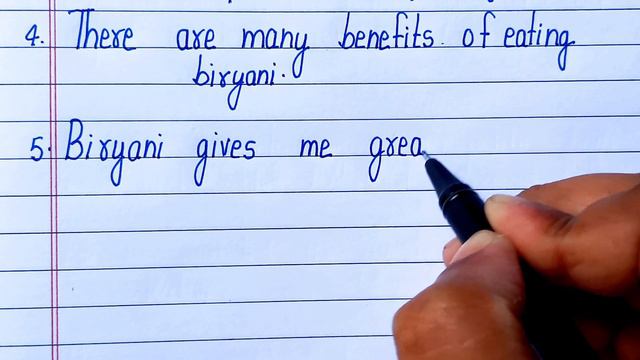 4. There are many benefits of eating
biryani.
5. Biryani gives me grea